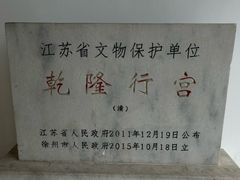 江苏省文物保护单位
乾隆行宫
（清）
江苏省人民政府2011年12月19日公布
徐州市人民政府2015年10月18日立